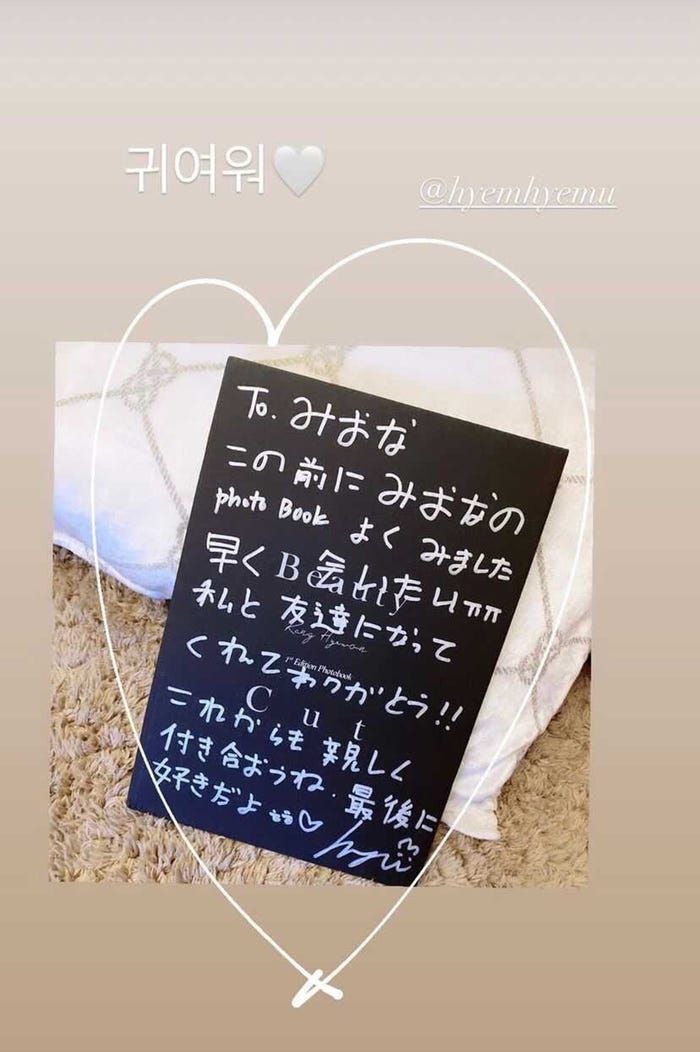 귀여워🤍
@hyemhyemu
To. みおな
この前に みおなの
photo Book よく みました
早く 会いたいㅠㅠ
Beauty
私と 友達になって
Kang Hyewon
1st Edition Photobook
くれてありがとう!!
Cut
これからも 親しく
付き合おうね. 最後に
好きぢよ